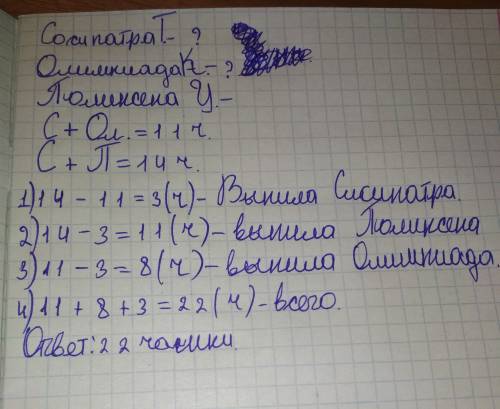 Сосипатра Г. - ?
Олимпиада К. - ?
Поликсена У. -
С + Ол. = 11 ч.
С + П = 14 ч.
1) 14 - 11 = 3 (ч) - Выпила Сисипатра.
2) 14 - 3 = 11 (ч) - выпила Поликсена
3) 11 - 3 = 8 (ч) - выпила Олимпиада.
4) 11 + 8 + 3 = 22 (ч) - всего.
Ответ: 22 чашки.